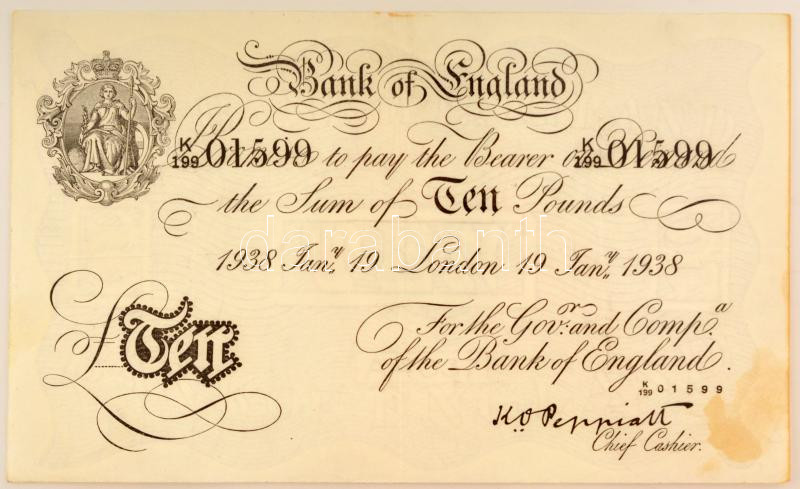 Bank of England
K/199 01599 K/199 01599
I Promise to pay the Bearer on Demand
the Sum of Ten Pounds
1938 Jan.y 19 London 19 Jan.y 1938
darabanth
£Ten
For the Gov.r and Comp.a
of the Bank of England.
K/199 01599
K.O. Peppiatt
Chief Cashier.